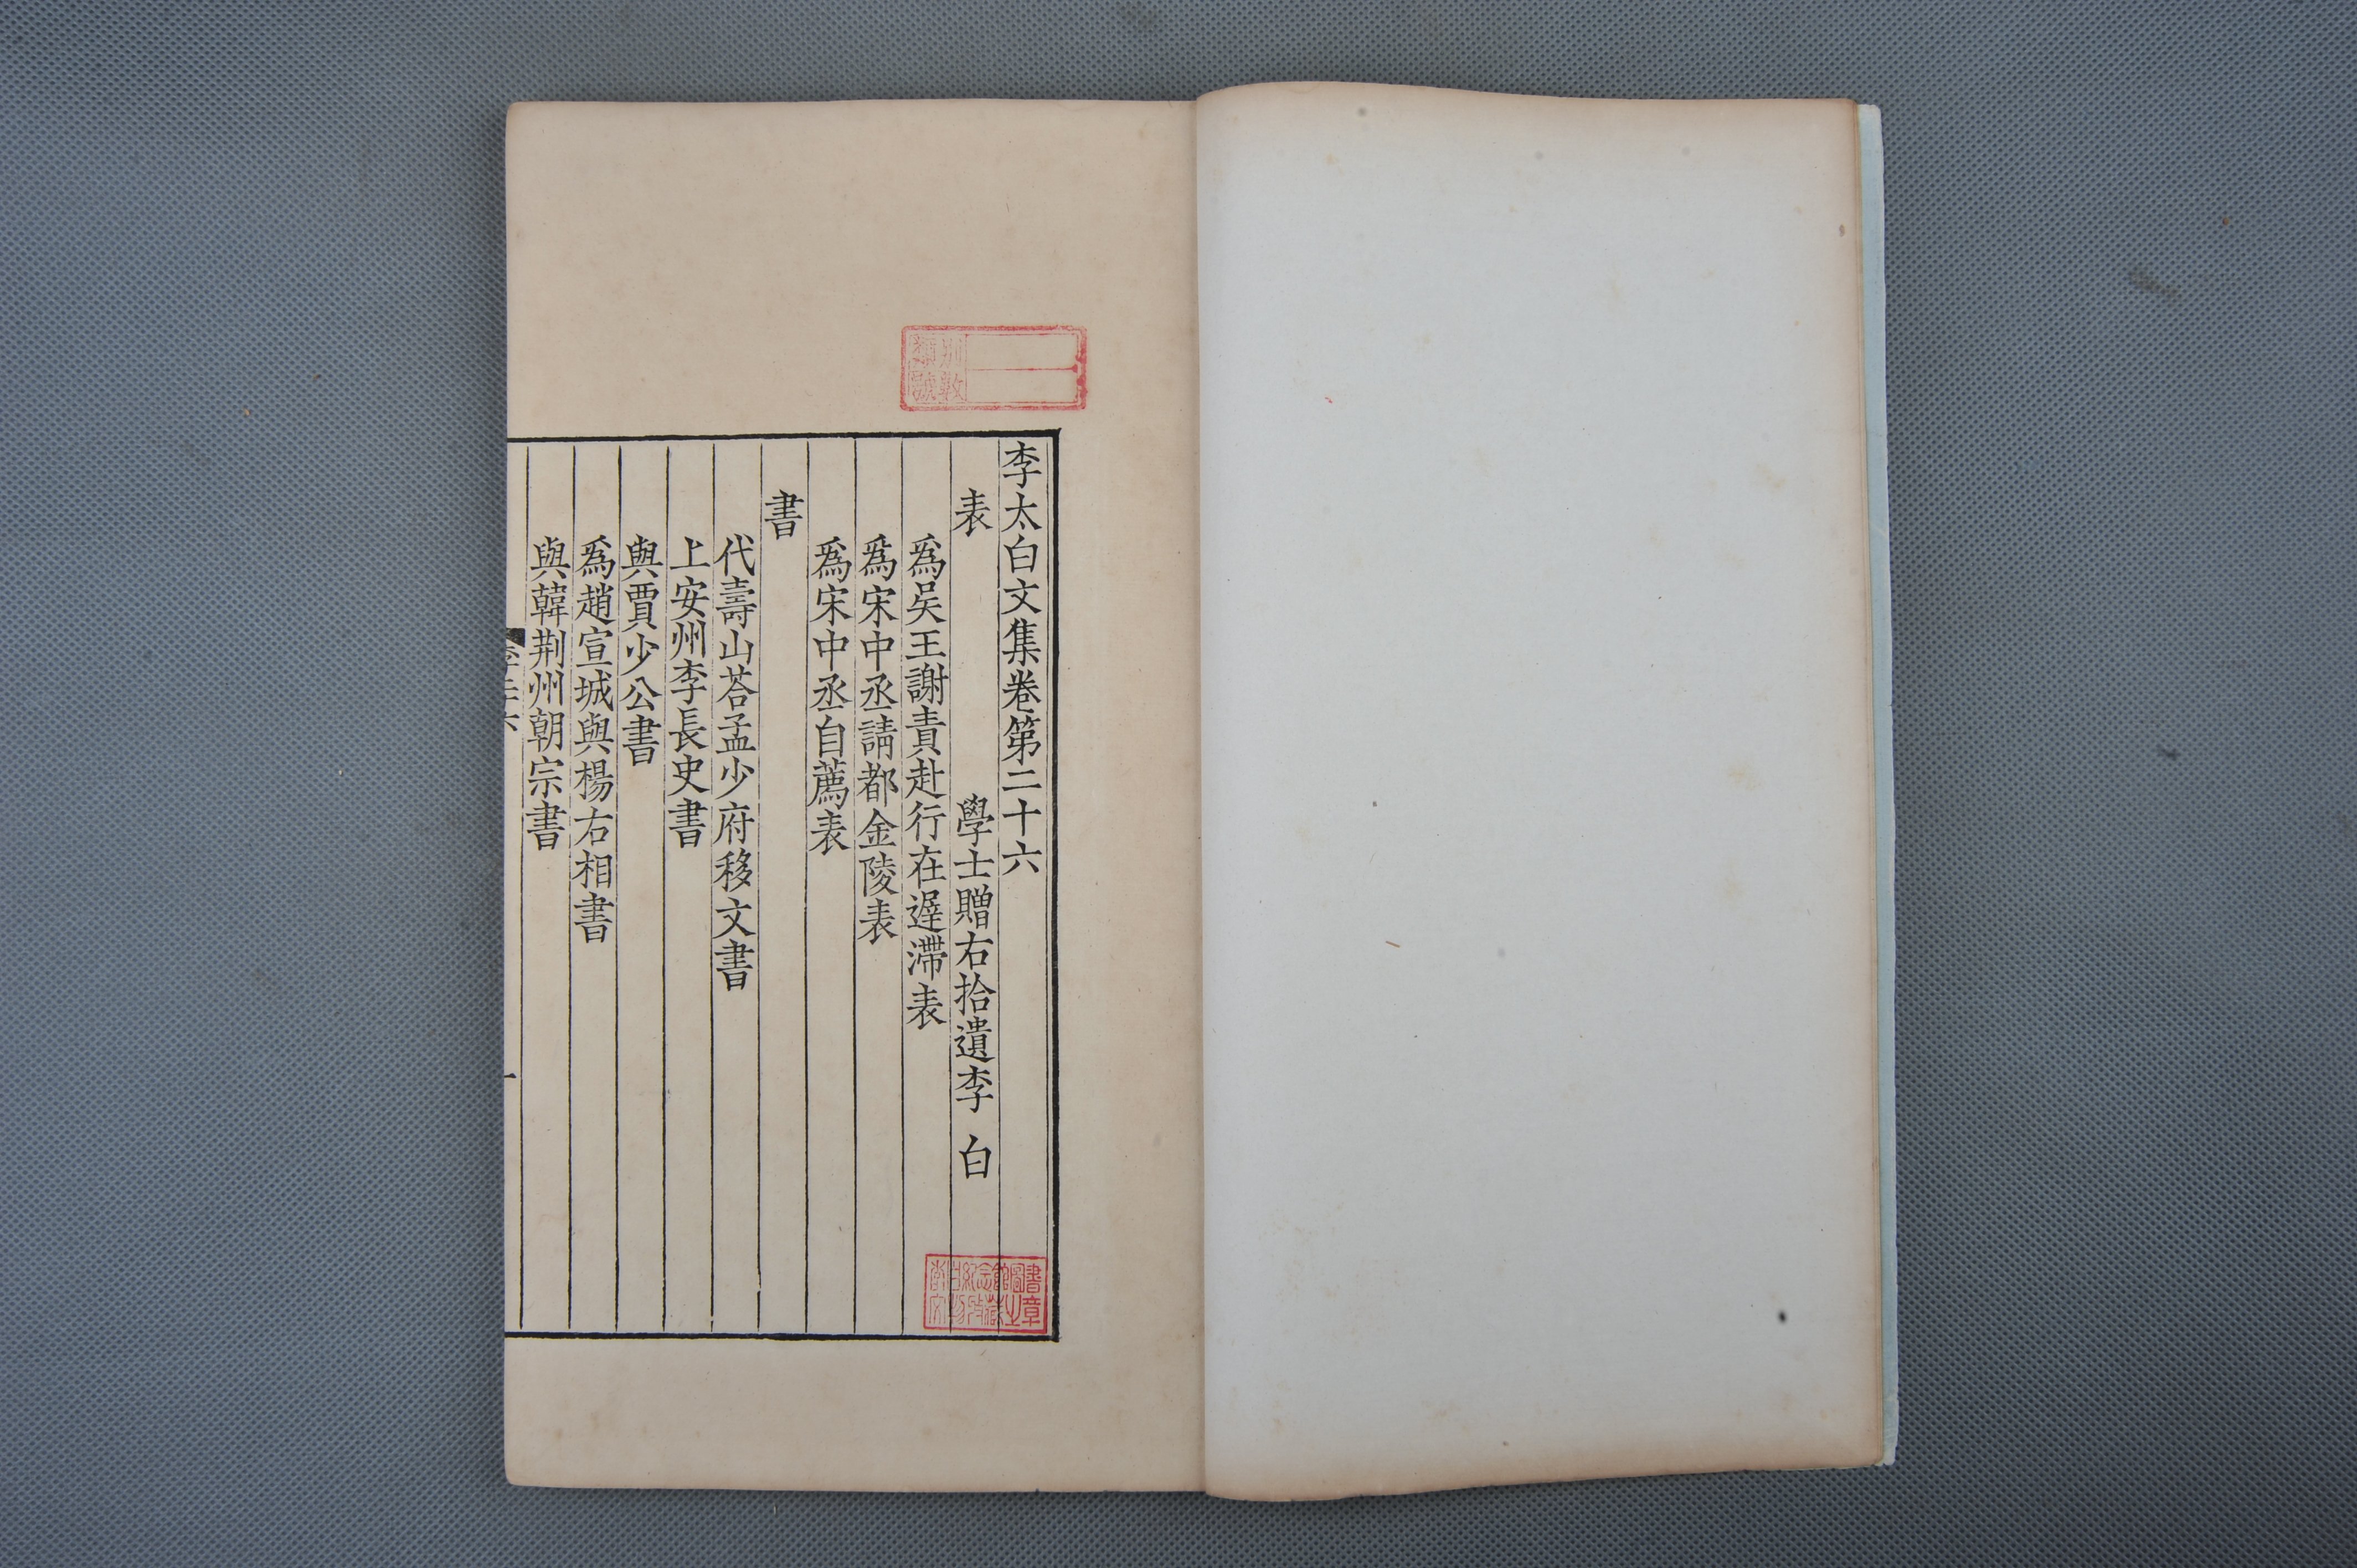 李太白文集卷第二十六
表 學士贈右拾遺李 白
爲吴王謝責赴行在遲滯表
爲宋中丞請都金陵表
爲宋中丞自薦表
書
代壽山荅孟少府移文書
上安州李長史書
與賈少公書
爲趙宣城與楊右相書
與韓荆州朝宗書
李二六
一
別類
數號